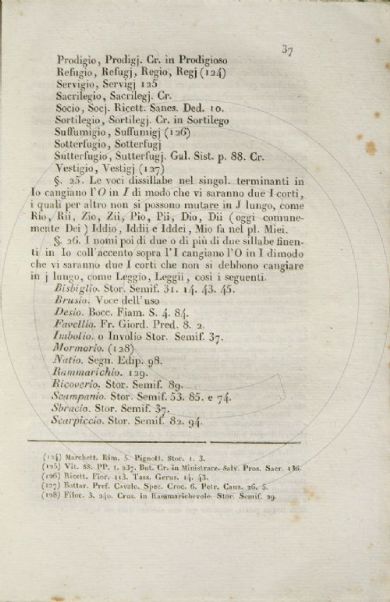 37
Prodigio, Prodigj. Cr. in Prodigioso
Refugio, Refugj, Regio, Regj (124)
Servigio, Servigj 125
Sacrilegio, Sacrilegj. Cr.
Socio, Socj. Ricett. Sanes. Ded. 10.
Sortilegio, Sortilegj. Cr. in Sortilego
Suffumigio, Suffumigj (126)
Sotterfugio, Sotterfugj
Sutterfugio, Sutterfugj. Gal. Sist. p. 88. Cr.
Vestigio, Vestigj (127)
§. 25. Le voci dissillabe nel singol. terminanti in
Io cangiano l'O in I di modo che vi saranno due I corti,
i quali per altro non si possono mutare in J lungo, come
Rio, Rii, Zio, Zii, Pio, Pii, Dio, Dii (oggi comune-
mente Dei) Iddio, Iddii e Iddei, Mio fa nel pl. Miei.
§. 26. I nomi poi di due o di più di due sillabe finen-
ti in Io coll'accento sopra l'I cangiano l'O in I dimodo
che vi saranno due I corti che non si debbono cangiare
in j lungo, come Leggio, Leggii, così i seguenti.
Bisbiglio. Stor. Semif. 31. 14. 43. 45.
Brusio. Voce dell'uso
Desio. Bocc. Fiam. S. 4. 84.
Favellio. Fr. Giord. Pred. 8. 2.
Imbolio. o Involio Stor. Semif. 37.
Mormorio. (128)
Natio. Segn. Edip. 98.
Rammarichio. 129.
Ricoverio. Stor. Semif. 89.
Scampanio. Stor. Semif. 53. 85. e 74.
Sbracio. Stor. Semif. 37.
Scarpiccio. Stor. Semif. 82. 94.
(124) Marchett. Rim. 5. Pignott. Stor. 1. 3.
(125) Vit. SS. PP. 1. 237. But. Cr. in Ministrare. Salv. Pros. Sacr. 136.
(126) Ricett. Fior. 113. Tass. Gerus. 14. 43.
(127) Bottar. Pref. Cavalc. Spec. Croc. 6. Petr. Canz. 26. 5.
(128) Filoc. 3. 240. Crus. in Rammarichevole. Stor. Semif. 29.